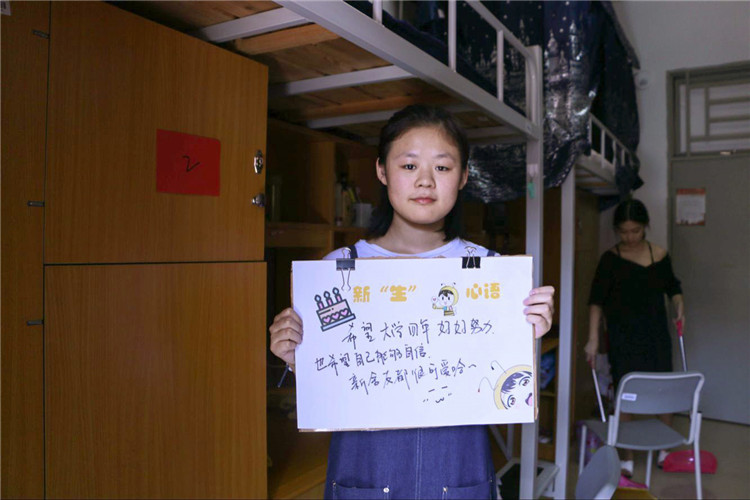 2
新 "生" 心语
希望大学四年好好努力.
也希望自己能够自信.
新舍友都很可爱哈~